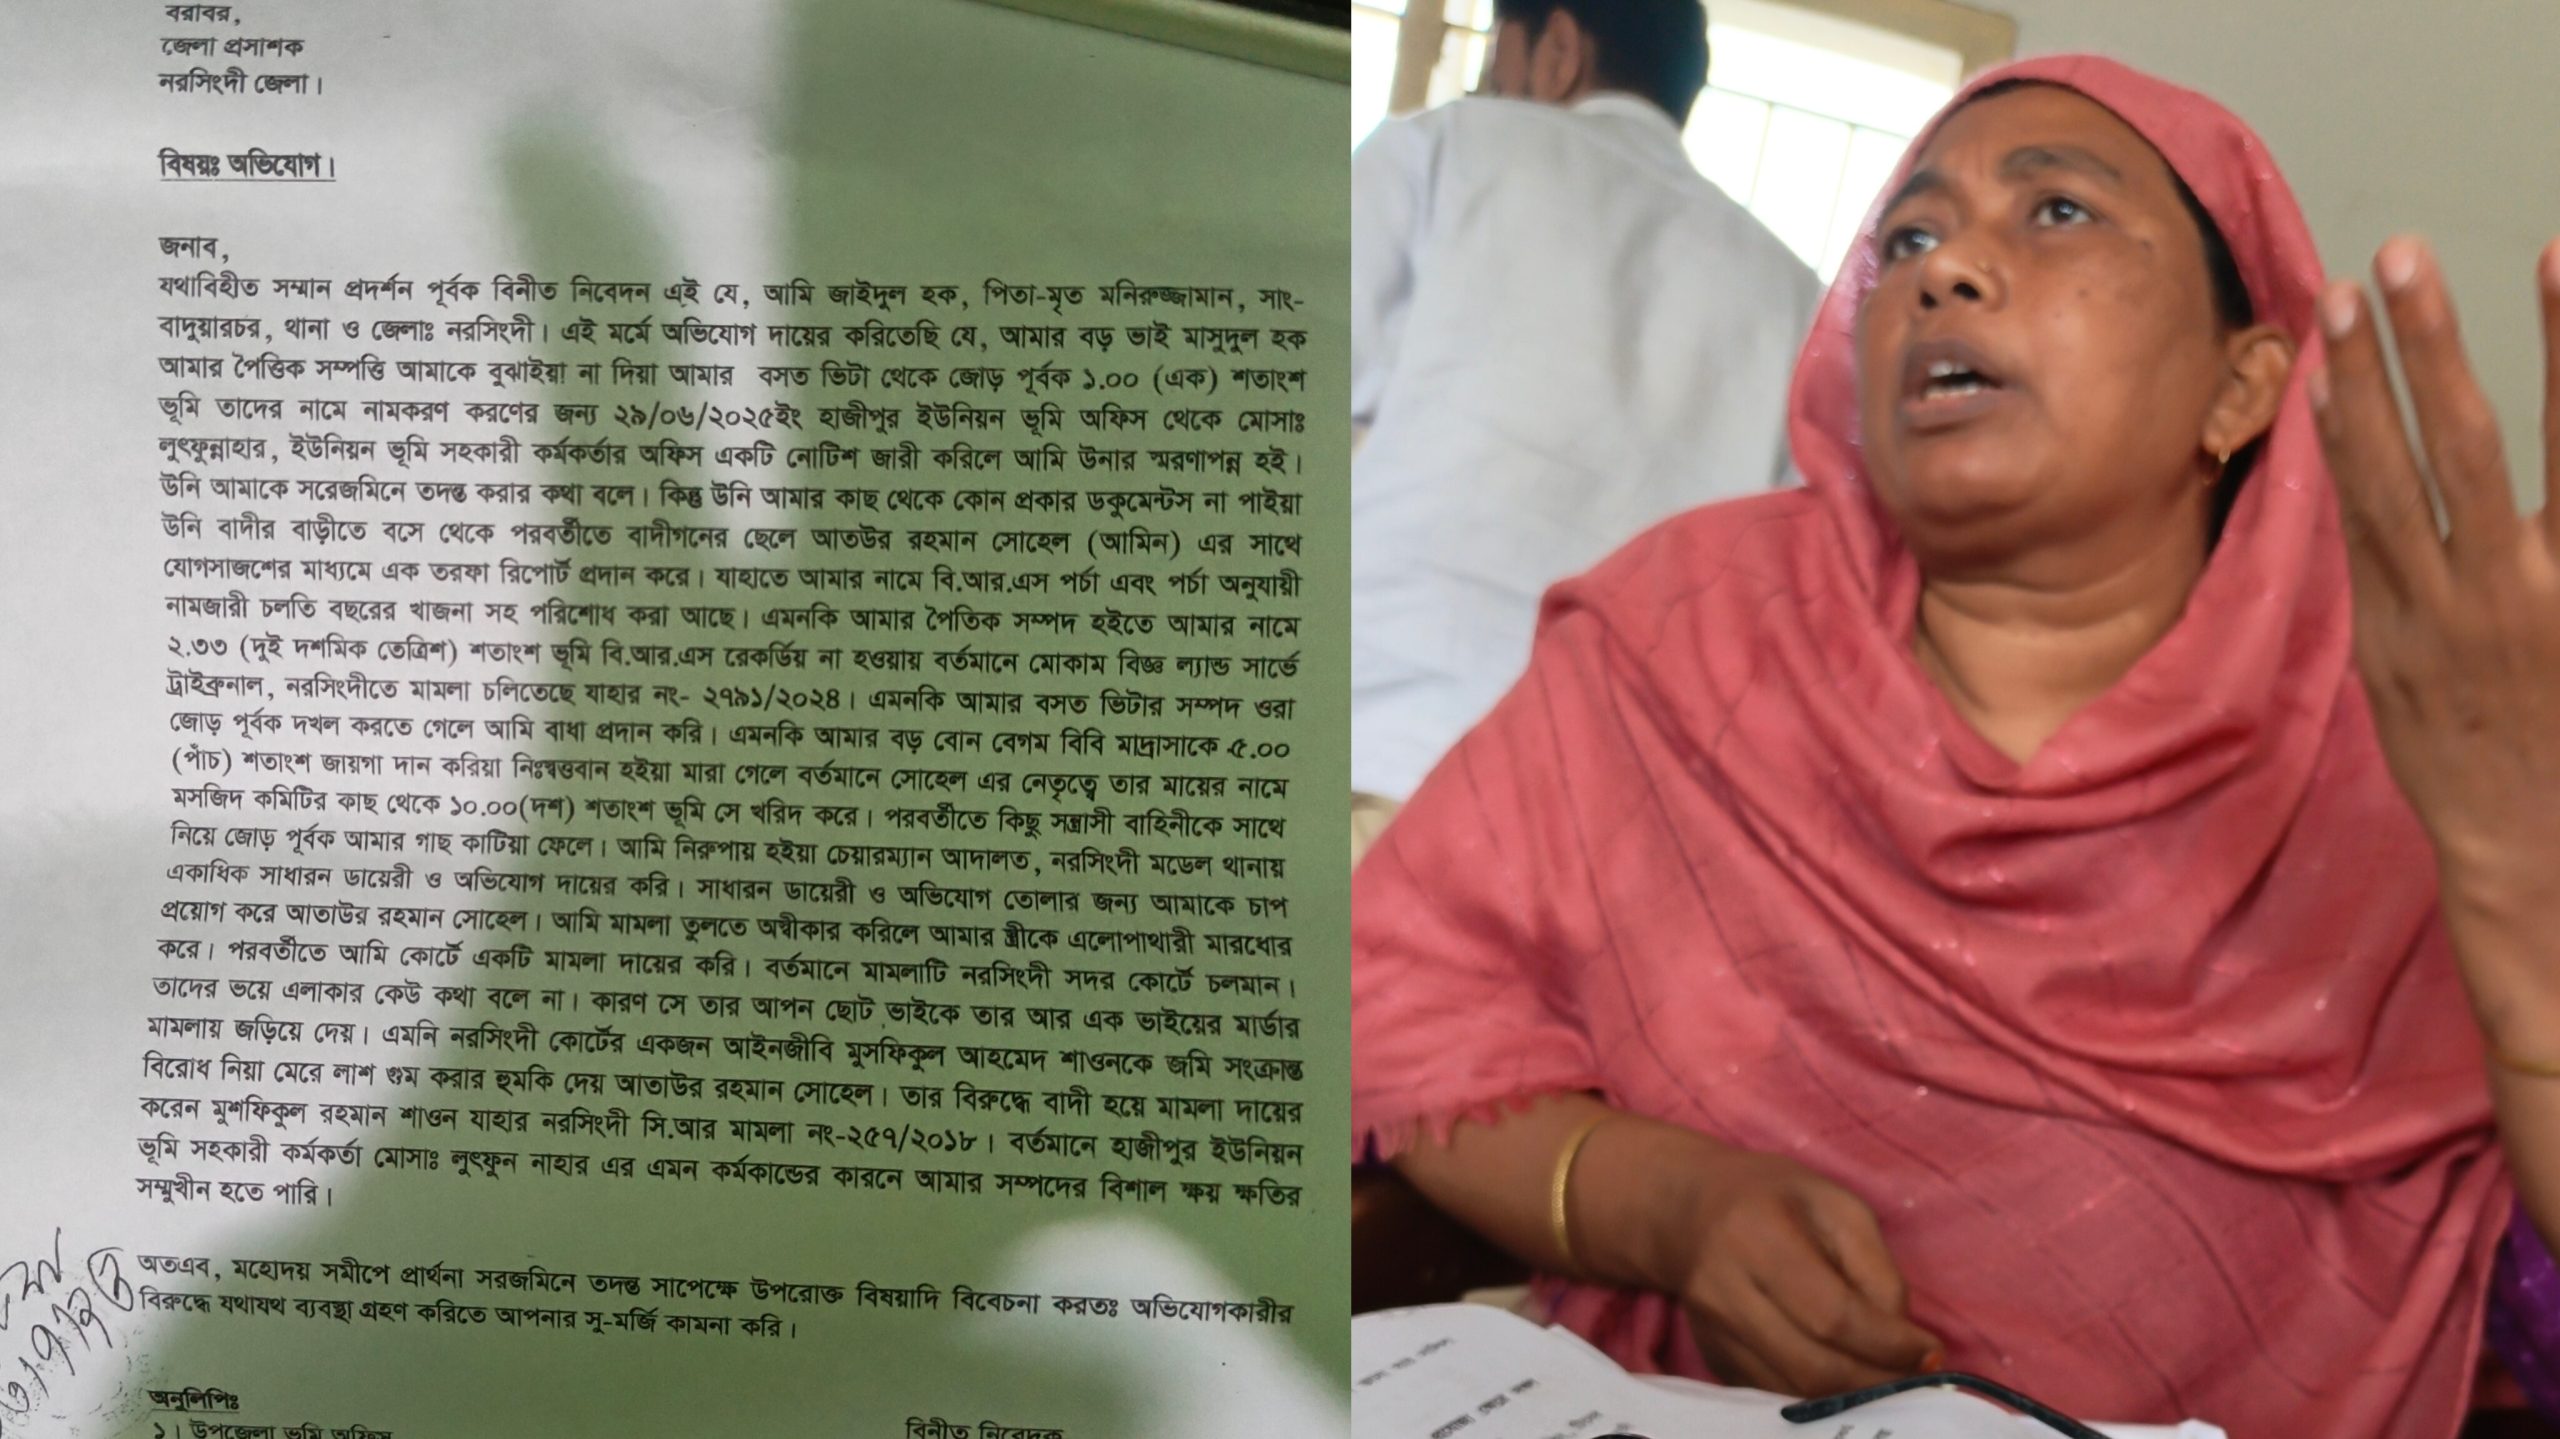 বরাবর,
জেলা প্রসাশক
নরসিংদী জেলা।
বিষয়ঃ অভিযোগ।
জনাব,
যথাবিহীত সম্মান প্রদর্শন পূর্বক বিনীত নিবেদন এই যে, আমি জাইদুল হক, পিতা-মৃত মনিরুজ্জামান, সাং-
বাদুয়ারচর, থানা ও জেলাঃ নরসিংদী। এই মর্মে অভিযোগ দায়ের করিতেছি যে, আমার বড় ভাই মাসুদুল হক
আমার পৈত্তিক সম্পত্তি আমাকে বুঝাইয়া না দিয়া আমার বসত ভিটা থেকে জোড় পূর্বক ১.০০ (এক) শতাংশ
ভূমি তাদের নামে নামকরণ করণের জন্য ২৯/০৬/২০২৫ইং হাজীপুর ইউনিয়ন ভূমি অফিস থেকে মোসাঃ
লুৎফুন্নাহার, ইউনিয়ন ভূমি সহকারী কর্মকর্তার অফিস একটি নোটিশ জারী করিলে আমি উনার স্মরণাপন্ন হই।
উনি আমাকে সরেজমিনে তদন্ত করার কথা বলে। কিন্তু উনি আমার কাছ থেকে কোন প্রকার ডকুমেন্টস না পাইয়া
উনি বাদীর বাড়ীতে বসে থেকে পরবর্তীতে বাদীগনের ছেলে আতউর রহমান সোহেল (আমিন) এর সাথে
যোগসাজশের মাধ্যমে এক তরফা রিপোর্ট প্রদান করে। যাহাতে আমার নামে বি.আর.এস পর্চা এবং পর্চা অনুযায়ী
নামজারী চলতি বছরের খাজনা সহ পরিশোধ করা আছে। এমনকি আমার পৈতিক সম্পদ হইতে আমার নামে
২.৩৩ (দুই দশমিক তেত্রিশ) শতাংশ ভূমি বি.আর.এস রেকর্ডিয় না হওয়ায় বর্তমানে মোকাম বিজ্ঞ ল্যান্ড সার্ভে
ট্রাইব্রুনাল, নরসিংদীতে মামলা চলিতেছে যাহার নং- ২৭৯১/২০২৪। এমনকি আমার বসত ভিটার সম্পদ ওরা
জোড় পূর্বক দখল করতে গেলে আমি বাধা প্রদান করি। এমনকি আমার বড় বোন বেগম বিবি মাদ্রাসাকে ৫.০০
(পাঁচ) শতাংশ জায়গা দান করিয়া নিঃস্বত্তবান হইয়া মারা গেলে বর্তমানে সোহেল এর নেতৃত্বে তার মায়ের নামে
মসজিদ কমিটির কাছ থেকে ১০.০০(দশ) শতাংশ ভূমি সে খরিদ করে। পরবর্তীতে কিছু সন্ত্রাসী বাহিনীকে সাথে
নিয়ে জোড় পূর্বক আমার গাছ কাটিয়া ফেলে। আমি নিরুপায় হইয়া চেয়ারম্যান আদালত, নরসিংদী মডেল থানায়
একাধিক সাধারন ডায়েরী ও অভিযোগ দায়ের করি। সাধারন ডায়েরী ও অভিযোগ তোলার জন্য আমাকে চাপ
প্রয়োগ করে আতাউর রহমান সোহেল। আমি মামলা তুলতে অস্বীকার করিলে আমার স্ত্রীকে এলোপাথারী মারধোর
করে। পরবর্তীতে আমি কোর্টে একটি মামলা দায়ের করি। বর্তমানে মামলাটি নরসিংদী সদর কোর্টে চলমান।
তাদের ভয়ে এলাকার কেউ কথা বলে না। কারণ সে তার আপন ছোট ভাইকে তার আর এক ভাইয়ের মার্ডার
মামলায় জড়িয়ে দেয়। এমনি নরসিংদী কোর্টের একজন আইনজীবি মুসফিকুল আহমেদ শাওনকে জমি সংক্রান্ত
বিরোধ নিয়া মেরে লাশ গুম করার হুমকি দেয় আতাউর রহমান সোহেল। তার বিরুদ্ধে বাদী হয়ে মামলা দায়ের
করেন মুশফিকুল রহমান শাওন যাহার নরসিংদী সি.আর মামলা নং-২৫৭/২০১৮। বর্তমানে হাজীপুর ইউনিয়ন
ভূমি সহকারী কর্মকর্তা মোসাঃ লুৎফুন নাহার এর এমন কর্মকান্ডের কারনে আমার সম্পদের বিশাল ক্ষয় ক্ষতির
সম্মুখীন হতে পারি।
অতএব, মহোদয় সমীপে প্রার্থনা সরজমিনে তদন্ত সাপেক্ষে উপরোক্ত বিষয়াদি বিবেচনা করতঃ অভিযোগকারীর
বিরুদ্ধে যথাযথ ব্যবস্থা গ্রহণ করিতে আপনার সু-মর্জি কামনা করি।
অনুলিপিঃ
১। উপজেলা ভূমি অফিস
বিনীত নিবেদক